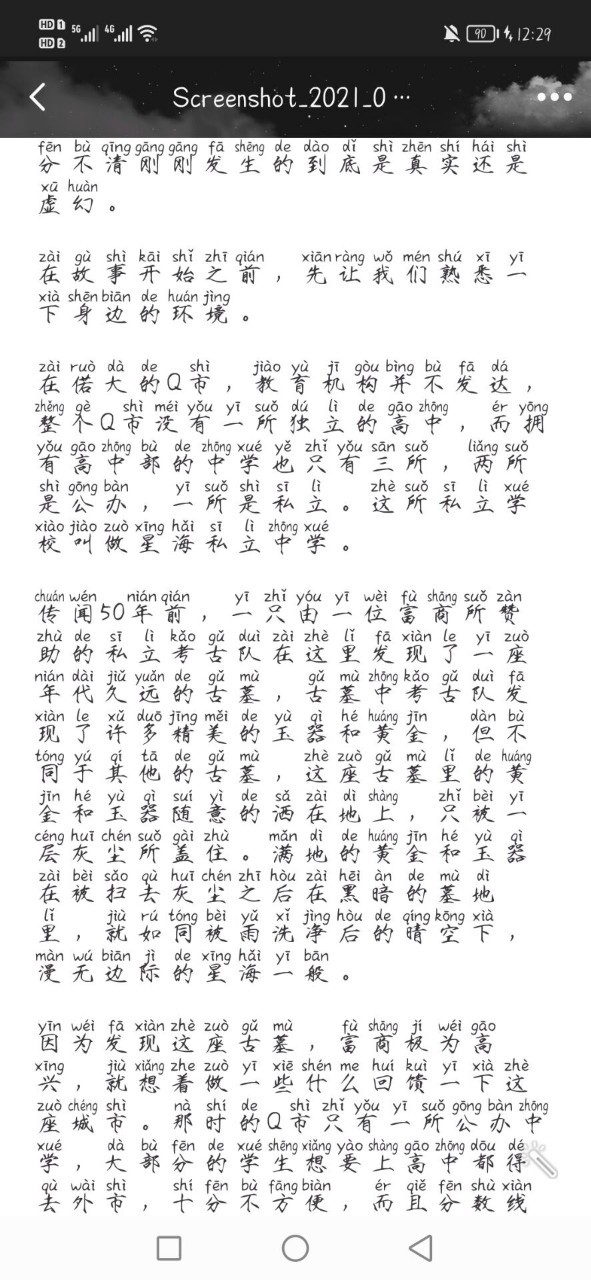 HD 1 5G 4G 90 12:29
HD 2
Screenshot_2021_0 ...
fēn bù qīng gāng gāng fā shēng de dào dǐ shì zhēn shí hái shì
分不清刚刚发生的到底是真实还是
xū huàn
虚幻。
zài gù shì kāi shǐ zhī qián xiān ràng wǒ mén shú xī yī
在故事开始之前，先让我们熟悉一
xià shēn biān de huán jìng
下身边的环境。
zài ruò dà de shì jiào yù jī gòu bìng bù fā dá
在偌大的Q市，教育机构并不发达，
zhěng gè shì méi yǒu yī suǒ dú lì de gāo zhōng ér yōng
整个Q市没有一所独立的高中，而拥
yǒu gāo zhōng bù de zhōng xué yě zhǐ yǒu sān suǒ liǎng suǒ
有高中部的中学也只有三所，两所
shì gōng bàn yī suǒ shì sī lì zhè suǒ sī lì xué
是公办，一所是私立。这所私立学
xiào jiào zuò xīng hǎi sī lì zhōng xué
校叫做星海私立中学。
chuán wén nián qián yī zhǐ yóu yī wèi fù shāng suǒ zàn
传闻50年前，一只由一位富商所赞
zhù de sī lì kǎo gǔ duì zài zhè lǐ fā xiàn le yī zuò
助的私立考古队在这里发现了一座
nián dài jiǔ yuǎn de gǔ mù gǔ mù zhōng kǎo gǔ duì fā
年代久远的古墓，古墓中考古队发
xiàn le xǔ duō jīng měi de yù qì hé huáng jīn dàn bù
现了许多精美的玉器和黄金，但不
tóng yú qí tā de gǔ mù zhè zuò gǔ mù lǐ de huáng
同于其他的古墓，这座古墓里的黄
jīn hé yù qì suí yì de sǎ zài dì shàng zhǐ bèi yī
金和玉器随意的洒在地上，只被一
céng huī chén suǒ gài zhù mǎn dì de huáng jīn hé yù qì
层灰尘所盖住。满地的黄金和玉器
zài bèi sǎo qù huī chén zhī hòu zài hēi àn de mù dì
在被扫去灰尘之后在黑暗的墓地
lǐ jiù rú tóng bèi yǔ xǐ jìng hòu de qíng kōng xià
里，就如同被雨洗净后的晴空下，
màn wú biān jì de xīng hǎi yī bān
漫无边际的星海一般。
yīn wéi fā xiàn zhè zuò gǔ mù fù shāng jí wéi gāo
因为发现这座古墓，富商极为高
xīng jiù xiǎng zhe zuò yī xiē shén me huí kuì yī xià zhè
兴，就想着做一些什么回馈一下这
zuò chéng shì nà shí de shì zhǐ yǒu yī suǒ gōng bàn zhōng
座城市。那时的Q市只有一所公办中
xué dà bù fēn de xué shēng xiǎng yào shàng gāo zhōng dōu dé
学，大部分的学生想要上高中都得
qù wài shì shí fēn bù fāng biàn ér qiě fēn shù xiàn
去外市，十分不方便，而且分数线